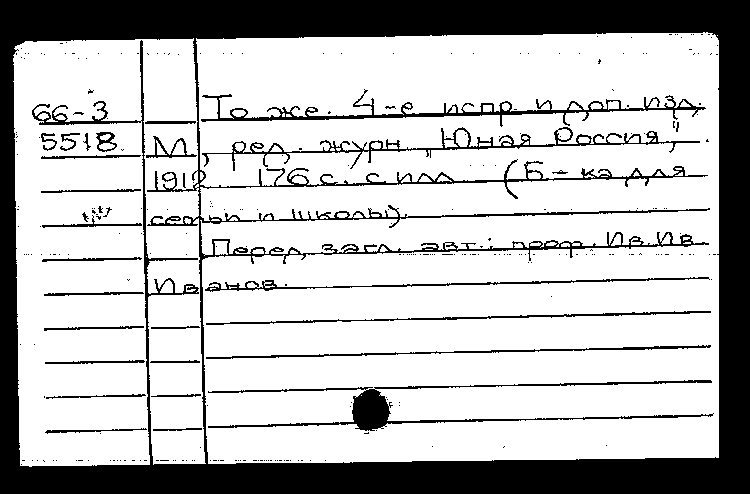 66-3 То же. 4-е испр. и доп. изд.
5518. М., ред. журн. „Юная Россия",
1912. 176 с. с илл. (Б-ка для
семьи и школы).
Перед загл. авт.: проф. Ив. Ив.
Иванов.